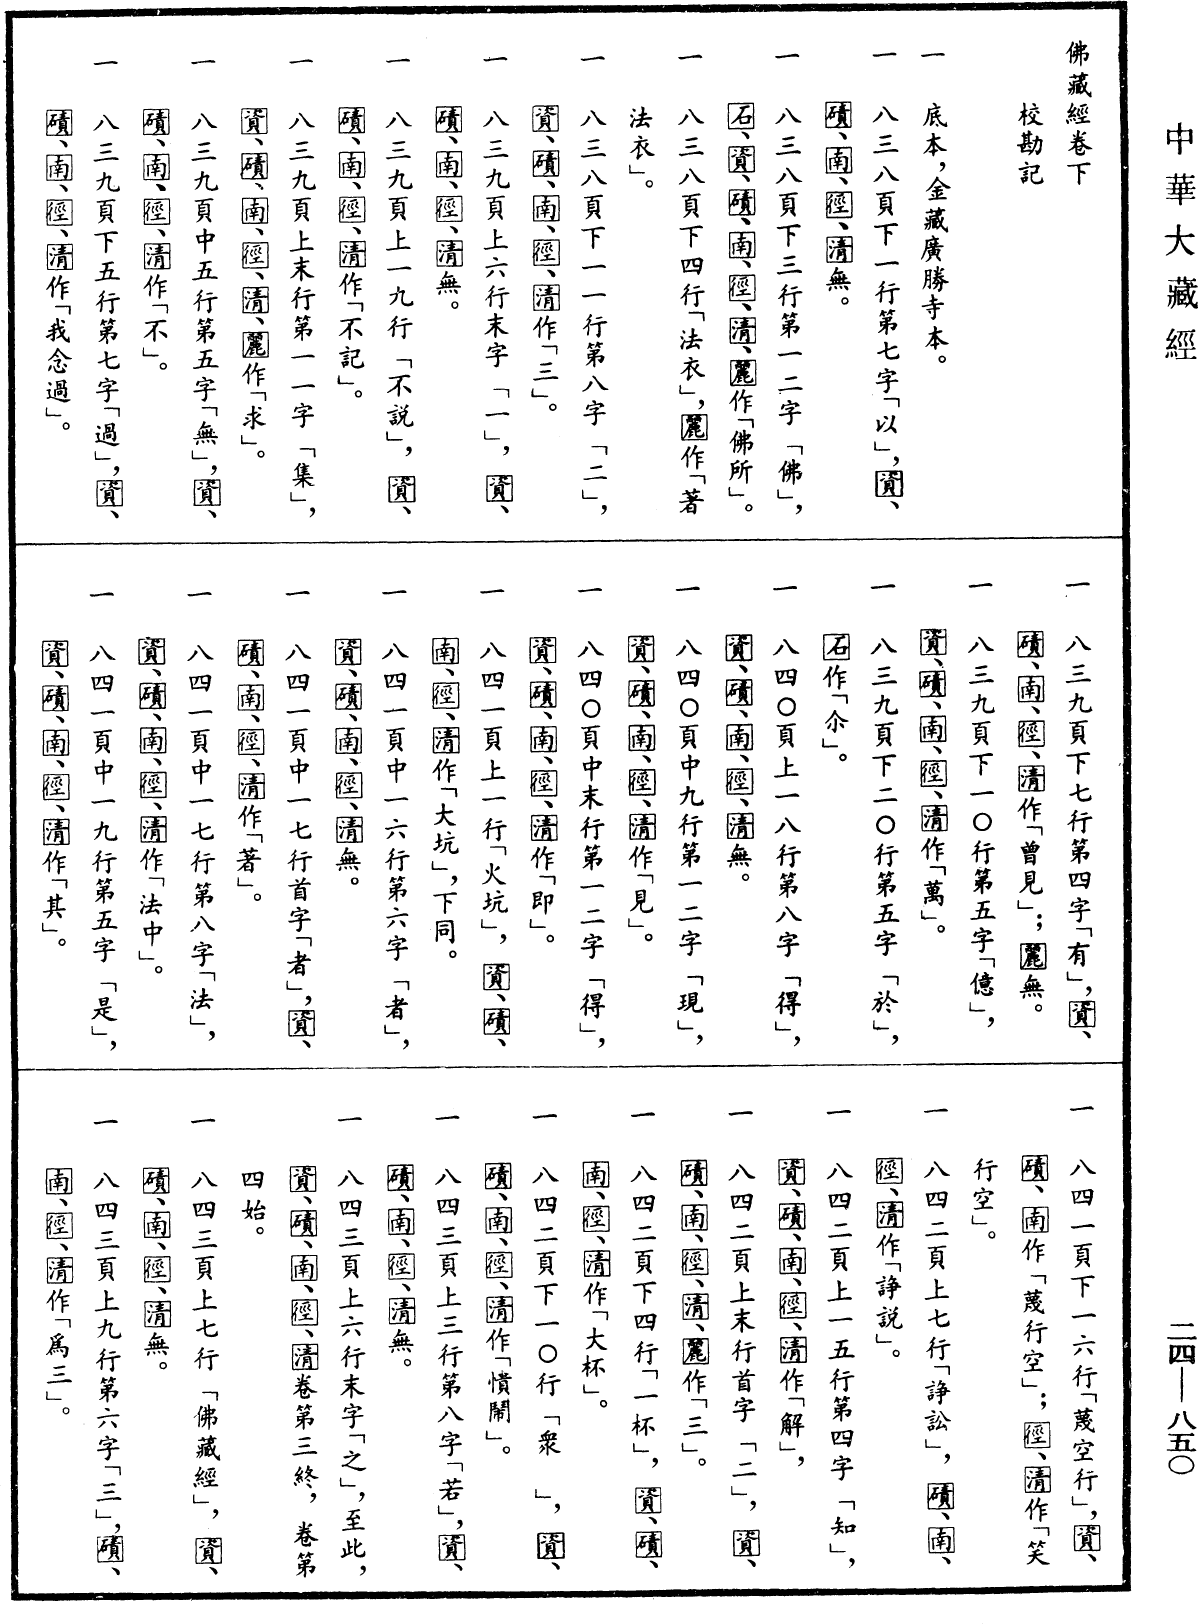 中華大藏經
佛藏經卷下
校勘記
一　底本，金藏廣勝寺本。
一　八三八頁下一行第七字「以」，資、
磧、南、徑、清無。
一　八三八頁下三行第一二字「佛」，
石、資、磧、南、徑、清、麗作「佛所」。
一　八三八頁下四行「法衣」，麗作「著
法衣」。
一　八三八頁下一一行第八字「二」，
資、磧、南、徑、清作「三」。
一　八三九頁上六行末字「一」，資、
磧、南、徑、清無。
一　八三九頁上一九行「不説」，資、
磧、南、徑、清作「不記」。
一　八三九頁上末行第一一字「集」，
資、磧、南、徑、清、麗作「求」。
一　八三九頁中五行第五字「無」，資、
磧、南、徑、清作「不」。
一　八三九頁下五行第七字「過」，資、
磧、南、徑、清作「我念過」。
一　八三九頁下七行第四字「有」，資、
磧、南、徑、清作「曾見」；麗無。
一　八三九頁下一〇行第五字「億」，
資、磧、南、徑、清作「萬」。
一　八三九頁下二〇行第五字「於」，
石作「尒」。
一　八四〇頁上一八行第八字「得」，
資、磧、南、徑、清無。
一　八四〇頁中九行第一二字「現」，
資、磧、南、徑、清作「見」。
一　八四〇頁中末行第一二字「得」，
資、磧、南、徑、清作「即」。
一　八四一頁上一行「火坑」，資、磧、
南、徑、清作「大坑」，下同。
一　八四一頁中一六行第六字「者」，
資、磧、南、徑、清無。
一　八四一頁中一七行首字「者」，資、
磧、南、徑、清作「著」。
一　八四一頁中一七行第八字「法」，
資、磧、南、徑、清作「法中」。
一　八四一頁中一九行第五字「是」，
資、磧、南、徑、清作「其」。
一　八四一頁下一六行「蔑空行」，資、
磧、南作「蔑行空」；徑、清作「笑
行空」。
一　八四二頁上七行「諍訟」，磧、南、
徑、清作「諍説」。
一　八四二頁上一五行第四字「知」，
資、磧、南、徑、清作「解」，
一　八四二頁上末行首字「二」，資、
磧、南、徑、清、麗作「三」。
一　八四二頁下四行「一杯」，資、磧、
南、徑、清作「大杯」。
一　八四二頁下一〇行「衆　」，資、
磧、南、徑、清作「憒鬧」。
一　八四三頁上三行第八字「若」，資、
磧、南、徑、清無。
一　八四三頁上六行末字「之」，至此，
資、磧、南、徑、清卷第三終，卷第
四始。
一　八四三頁上七行「佛藏經」，資、
磧、南、徑、清無。
一　八四三頁上九行第六字「三」，磧、
南、徑、清作「爲三」。
二四—八五〇